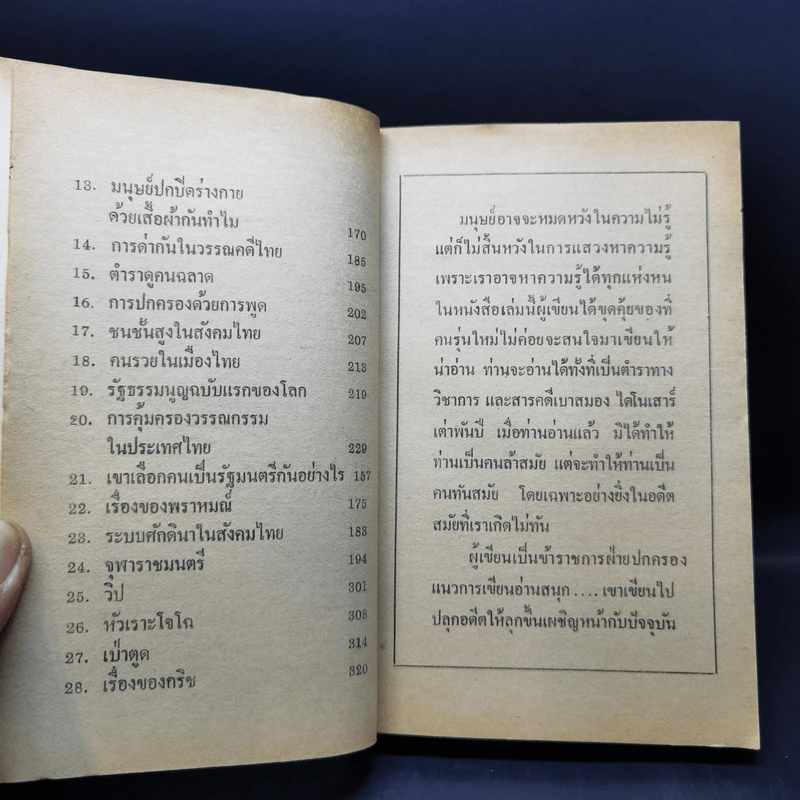 13. มนุษย์ปกปิดร่างกาย
ด้วยเสื้อผ้ากันทำไม 170
14. การด่ากันในวรรณคดีไทย 185
15. ตำราดูคนฉลาด 195
16. การปกครองด้วยการพูด 202
17. ชนชั้นสูงในสังคมไทย 207
18. คนรวยในเมืองไทย 213
19. รัฐธรรมนูญฉบับแรกของโลก 219
20. การคุ้มครองวรรณกรรม
ในประเทศไทย 229
21. เขาเลือกคนเป็นรัฐมนตรีกันอย่างไร 157
22. เรื่องของพราหมณ์ 175
23. ระบบศักดินาในสังคมไทย 183
24. จุฬาราชมนตรี 194
25. วิป 301
26. หัวเราะโจโฉ 308
27. เป่าตูด 314
28. เรื่องของกริช 320
มนุษย์อาจจะหมดหวังในความไม่รู้
แต่ก็ไม่สิ้นหวังในการแสวงหาความรู้
เพราะเราอาจหาความรู้ได้ทุกแห่งหน
ในหนังสือเล่มนี้ผู้เขียนได้ขุดคุ้ยของที่
คนรุ่นใหม่ไม่ค่อยจะสนใจมาเขียนให้
น่าอ่าน ท่านจะอ่านได้ทั้งที่เป็นตำราทาง
วิชาการ และสารคดีเบาสมอง ไดโนเสาร์
เต่าพันปี เมื่อท่านอ่านแล้ว มิได้ทำให้
ท่านเป็นคนล้าสมัย แต่จะทำให้ท่านเป็น
คนทันสมัย โดยเฉพาะอย่างยิ่งในอดีต
สมัยที่เราเกิดไม่ทัน
ผู้เขียนเป็นข้าราชการฝ่ายปกครอง
แนวการเขียนอ่านสนุก.... เขาเขียนไป
ปลุกอดีตให้ลุกขึ้นเผชิญหน้ากับปัจจุบัน